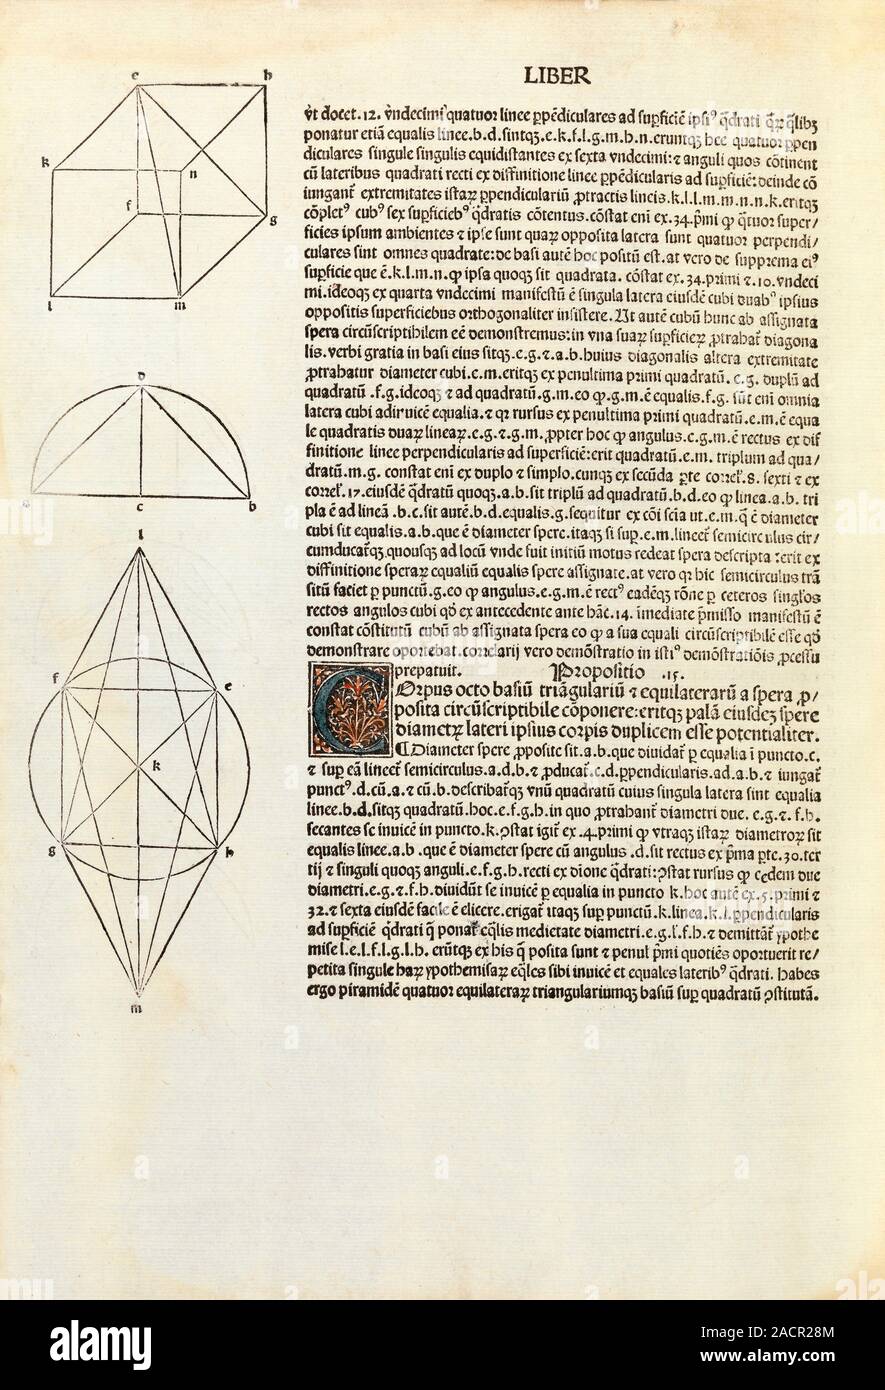 LIBER
ṽt docet.12. ṽndecimi quatuor linee ꝑpẽdiculares ad suꝑficiẽ ipsiꝰ q̃drati
ponatur etiã equalis linee.b.d.sintqꝫ.e.k.f.l.g.m.h.n.eruntqꝫ hec quatuor ꝑpen
diculares singule singulis equidistantes ex sexta vndecimi:⁊ anguli quos cõtinent
cũ lateribus quadrati recti ex diffinitione linee ꝑpẽdicularis ad suꝑficiẽ:deinde cõ
iungant᷑ extremitates istaꝝ ꝑpendiculariũ ꝓtractis lineis.k.l.l.m.m.n.n.k.eritqꝫ
cõpletꝰ cubꝰ sex suꝑficiebꝰ q̃dratis cõtentus.cõstat eni᷑ ex.34.p̃mi ꝙ q̃tuor super/
ficies ipsum ambientes ⁊ ipse sunt quaꝝ opposita latera sunt quatuor perpendi/
culares sint omnes quadrate:de basi autẽ hoc positũ est.at vero de suprema eiꝰ
suꝑficie que ẽ.k.l.m.n.ꝙ ipsa quoqꝫ sit quadrata. cõstat ex.34.primi ⁊.10.vndeci
mi.ideoqꝫ ex quarta vndecimi manifestũ ẽ singula latera eiusdẽ cubi duabꝰ ipsius
oppositis superficiebus orthogonaliter insistere.Ut autẽ cubũ hunc ab assignata
spera circũscriptibilem eẽ demonstremus:in vna suaꝝ suꝑficieꝝ ꝓtrahat᷑ diagona
lis.verbi gratia in basi eius sitqꝫ.e.g.⁊.a.b.huius diagonalis altera extremitate
ꝓtrahatur diameter cubi.e.m.eritqꝫ ex penultima primi quadratũ.e.g.duplũ ad
quadratũ .f.g.ideoqꝫ ⁊ ad quadratũ.g.m.eo ꝙ.g.m.ẽ equalis.f.g. sũt eni᷑ omnia
latera cubi adinuicẽ equalia.⁊ qꝛ rursus ex penultima primi quadratũ.e.m.ẽ equa
le quadratis duaꝝ lineaꝝ.e.g.⁊.g.m.ꝓpter hoc ꝙ angulus.e.g.m.ẽ rectus ex dif
finitione linee perpendicularis ad superficiẽ:erit quadratũ.e.m. triplum ad qua/
dratũ.m.g. constat eni᷑ ex duplo ⁊ simplo.cunqꝫ ex secũda ꝑte correl᷑.8. sexti ⁊ ex
correl᷑.17.eiusdẽ q̃dratũ quoqꝫ.a.b.sit triplũ ad quadratũ.b.d.eo ꝙ linea.a.b. tri
pla ẽ ad lineã .b.c.sit autẽ.b.d.equalis.g.sequitur ex cõi scia ut.e.m.q̃ ẽ diameter
cubi sit equalis.a.b.que ẽ diameter spere.itaqꝫ si suꝑ.e.m.lineet᷑ semicirculus cir/
cumducat᷑qꝫ.quousqꝫ ad locũ vnde fuit initiũ motus redeat spera descripta :erit ex
diffinitione speraꝝ equaliũ equalis spere assignate.at vero qꝛ hic semicirculus trã
sitũ faciet ꝑ punctũ.g.eo ꝙ angulus.e.g.m.ẽ rectꝰ eadẽqꝫ rõne ꝑ ceteros singlos
rectos angulos cubi qđ ex antecedente ante hãc.14. ĩmediate p̃misso manifestũ ẽ
constat cõstitutũ cubũ ab assignata spera eo ꝙ a sua equali circũscriptibilẽ esse qđ
demonstrare oportebat.correlarij vero demõstratio in istiꝰ demõstratiõis ꝓcessu
prepatuit. Propositio .15.
COrpus octo basiũ triãgulariũ ⁊ equilaterarũ a spera ꝓ/
posita circũscriptibile cõponere:eritqꝫ palã eiusdeꝫ spere
diametꝝ lateri ipsius corpis duplicem esse potentialiter.
¶Diameter spere ꝓposite sit.a.b.que diuidat᷑ ꝑ equalia ĩ puncto.c.
⁊ suꝑ eã lineet᷑ semicirculus.a.d.b.⁊ ꝓducat᷑.c.d.ꝑpendicularis.ad.a.b.⁊ iungat᷑
punctꝰ.d.cũ.a.⁊ cũ.b.describat᷑qꝫ vnũ quadratũ cuius singula latera sint equalia
linee.b.d.sitqꝫ quadratũ.hoc.e.f.g.h.in quo ꝓtrahant᷑ diametri due. e.g.⁊ f.h.
secantes se inuicẽ in puncto.k.ꝯstat igit᷑ ex .4.primi ꝙ vtraqꝫ istaꝝ diametroꝝ sit
equalis linee.a.b .que ẽ diameter spere cũ angulus .d.sit rectus ex p̃ma ꝑte.30.ter
tij ⁊ singuli quoqꝫ anguli.e.f.g.h.recti ex diõne q̃drati:ꝯstat rursus ꝙ eedem due
diametri.e.g.⁊.f.h.diuidũt se inuicẽ ꝑ equalia in puncto k.hoc autẽ ex.5.primi ⁊
32.⁊ sexta eiusdẽ facile ẽ elicere.erigat᷑ itaqꝫ suꝑ punctũ.k.linea.k.l.ꝑpendicularis
ad suꝑficiẽ q̃drati q̃ ponat᷑ eq̃lis medietate diametri.e.g.⁊ f.h.⁊ demittãt᷑ ypothe
mise l.e.l.f.l.g.l.h. erũtqꝫ ex his q̃ posita sunt ⁊ penul᷑ p̃mi quotiẽs oportuerit re/
petita singule haꝝ ypothemisaꝝ eq̃les sibi inuicẽ et equales lateribꝰ q̃drati. habes
ergo piramidẽ quatuor equilateraꝝ triangulariumqꝫ basiũ suꝑ quadratũ ꝯstitutã.
e h
k n
f g
l m
d
c b
l
f e
k
g h
m
alamy
Image ID: 2ACR28M
www.alamy.com